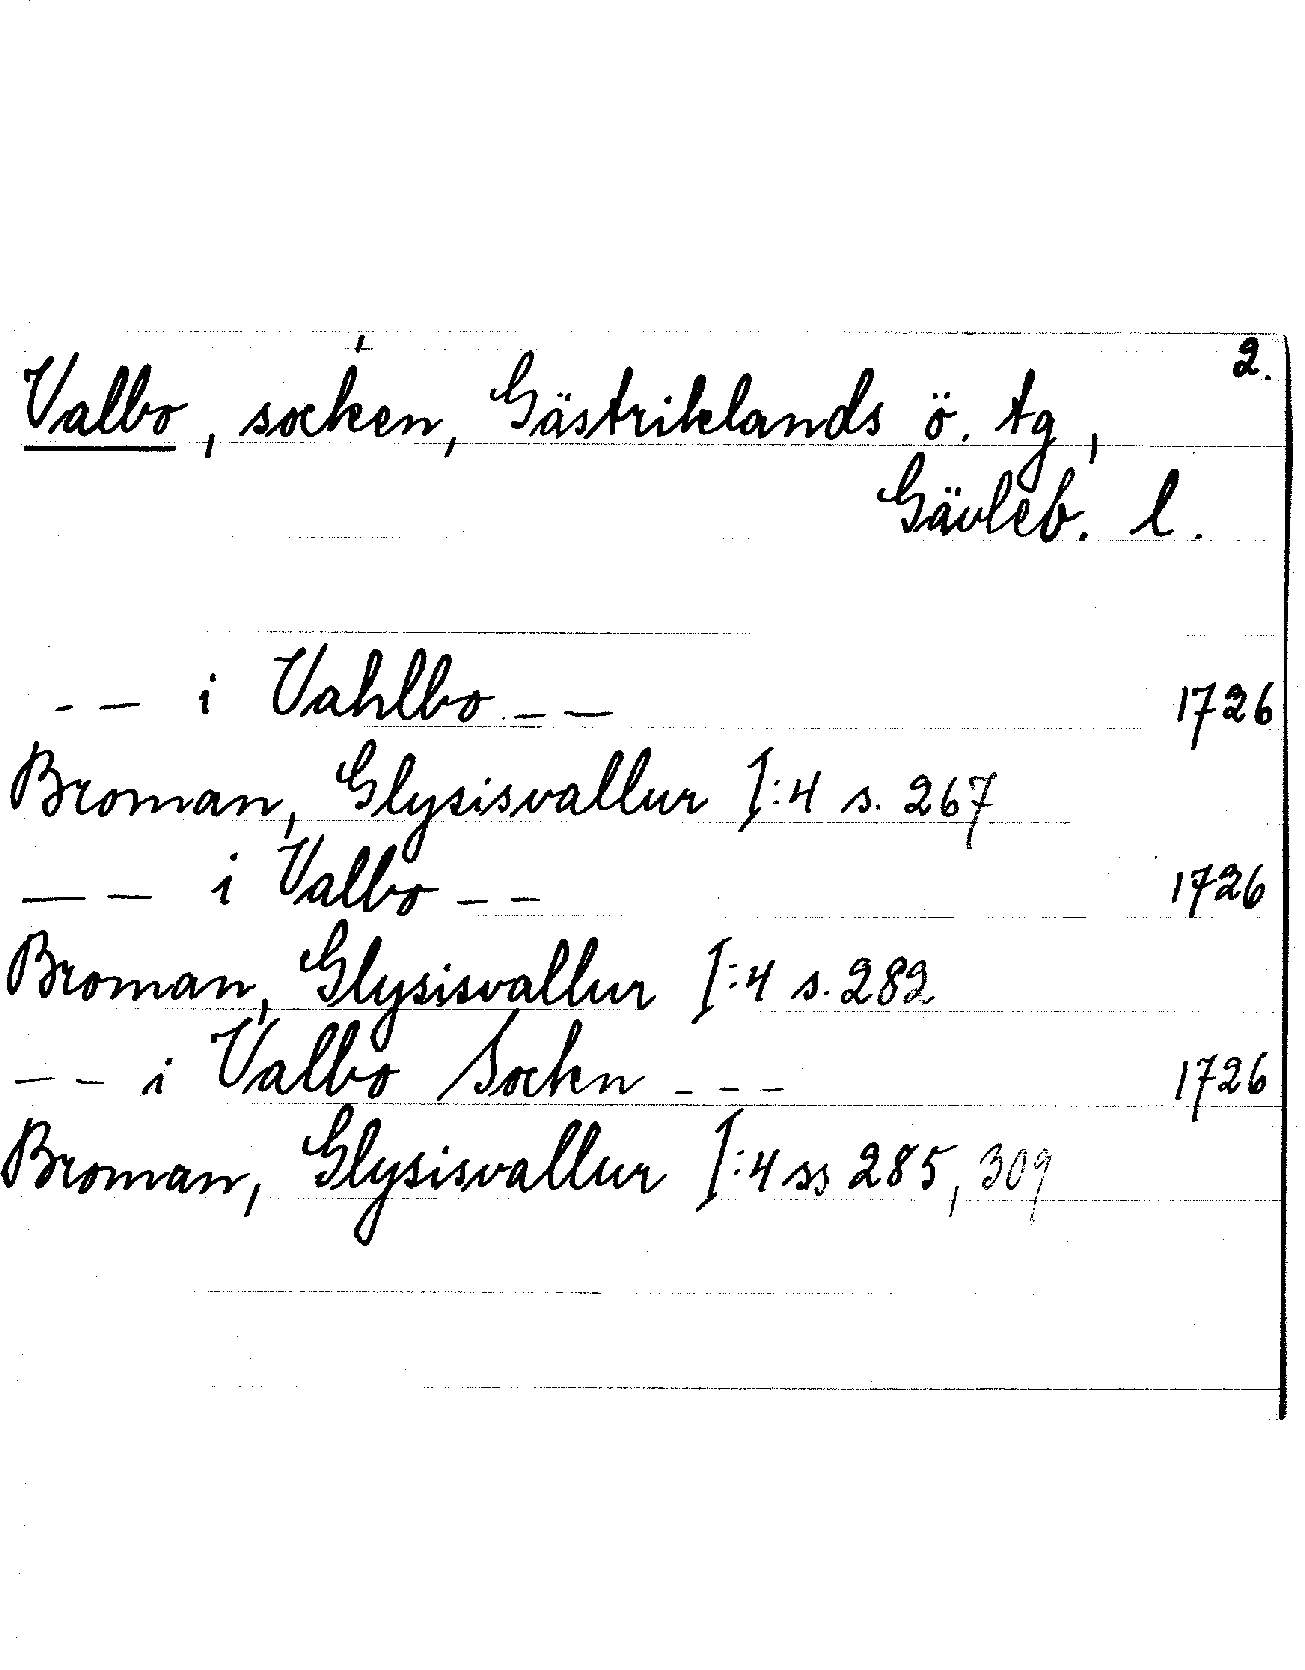 2.
Valbo, socken, Gästriklands ö. tg,
Gävleb. l.
- — i Vahlbo — — 1726
Broman, Glysisvallur I:4 s. 267
— — i Valbo — — 1726
Broman, Glysisvallur I:4 s. 282
— — i Valbo Sockn - - - 1726
Broman, Glysisvallur I:4 ss 285, 309